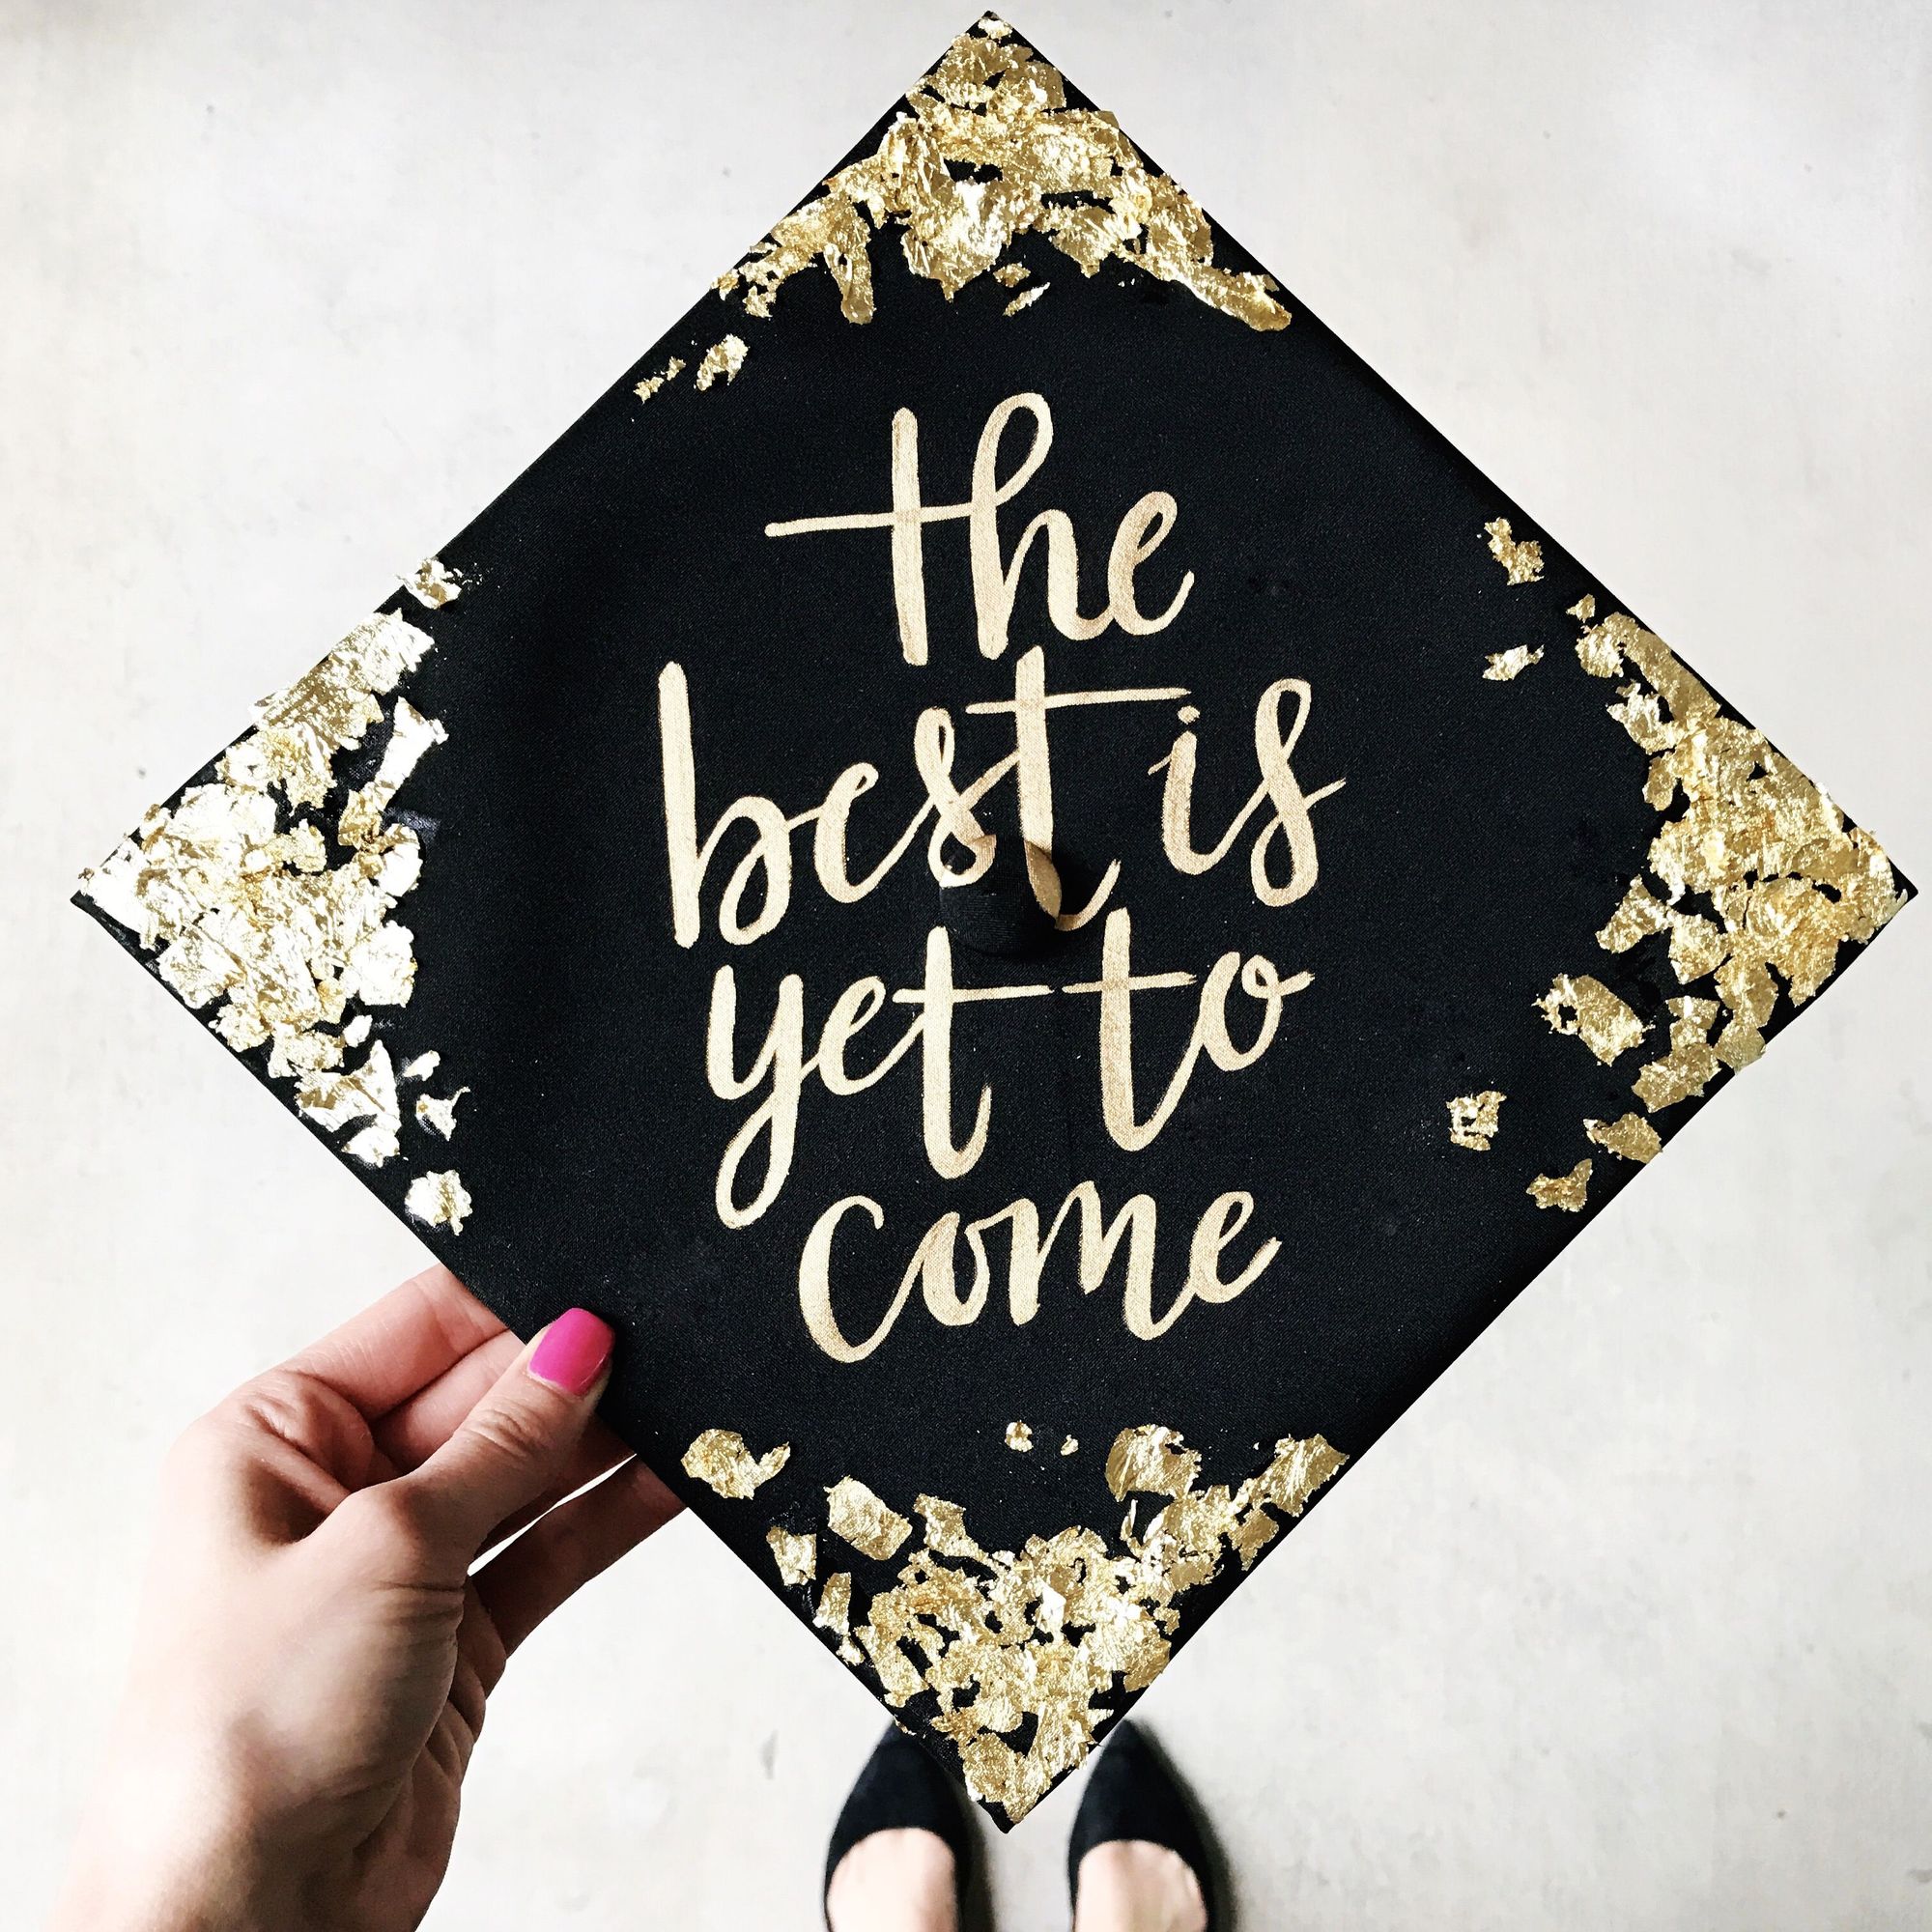 the
best is
yet to
come